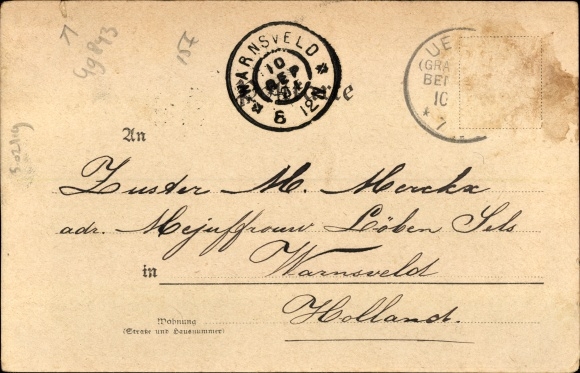 49893
157
5.02.19
WARNSVELD
10
SEP
8 12N
UE
(GRA
BEN
10
* 7
An
Zuster M. Merckx
adr. Mejuffrouw Löben Sels
in Warnsveld
Holland.
Wohnung
(Straße und Hausnummer)